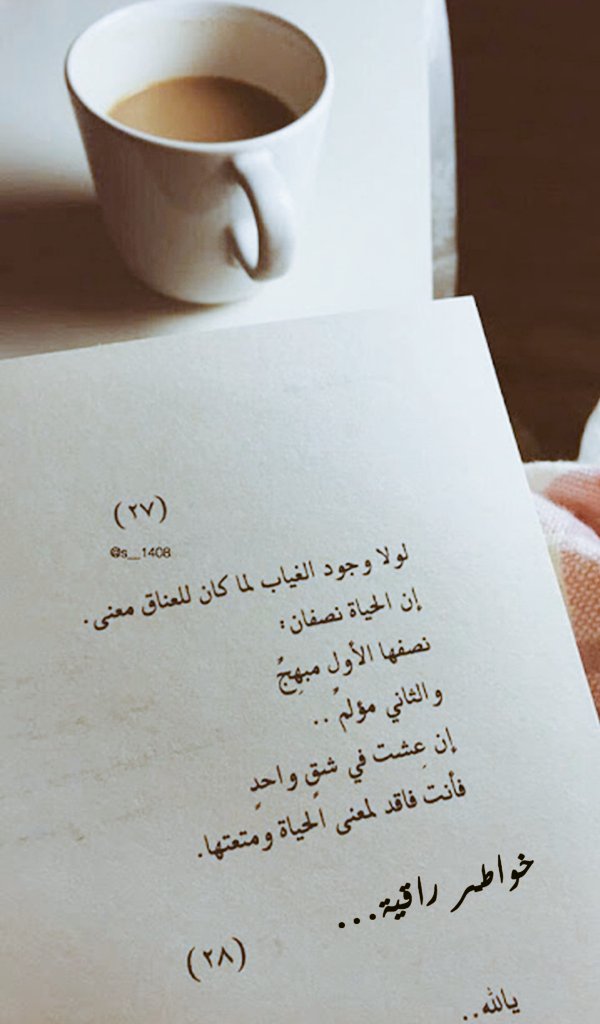 (٢٧)
@s__1408
لولا وجود الغياب لما كان للعناق معنى.
إن الحياة نصفان:
نصفها الأول مبهجٌ
والثاني مؤلمٌ ..
إن عِشت في شقٍ واحدٍ
فأنت فاقد لمعنى الحياة ومتعتها.
خواطر راقية...
(٢٨)
يالله..